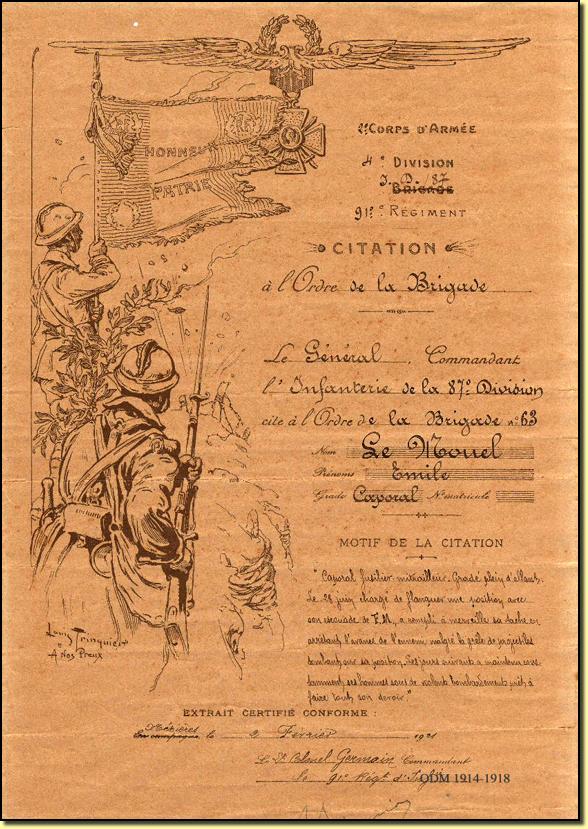 HONNEUR
PATRIE
Corps d'Armée
4e Division
I. D. / 87
Brigade
91e Régiment
CITATION
à l'Ordre de la Brigade
Le Général, Commandant
l'Infanterie de la 87e Division
cite à l'Ordre de la Brigade no 63
Nom Le Mouel
Prénoms Emile
Grade Caporal No matricule
MOTIF DE LA CITATION
"Caporal fusilier-mitrailleur. Gradé plein d'allant.
Le 28 juin chargé de flanquer une position avec
son escouade de F.M, a rempli à merveille sa tache en
arrêtant l'avance de l'ennemi malgré la grêle de projectiles
tombant sur sa position. Les jours suivant a maintenu cons-
tamment ses hommes sous de violent bombardement prêt à
faire tout son devoir."
Louis Trinquier
A Nos Preux
EXTRAIT CERTIFIÉ CONFORME :
Mézières
En campagne le 2 Février 1921
Le Lt Colonel Germain Commandant
le 91e Régt d'Infie
ODM 1914-1918